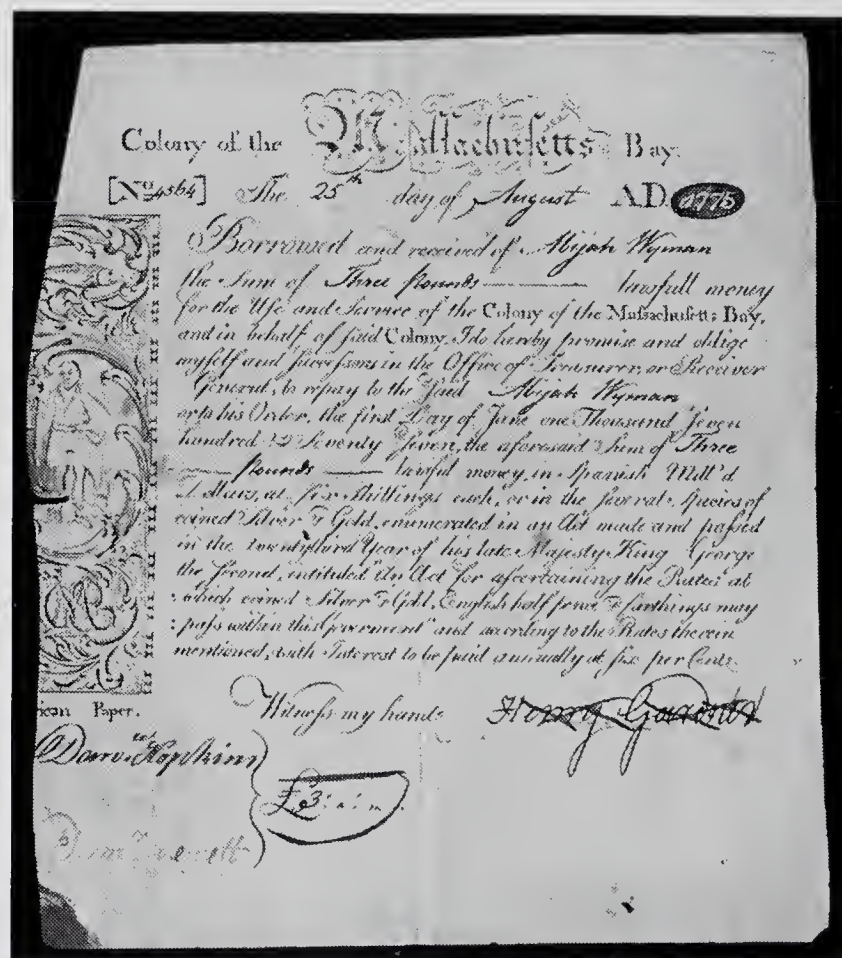 Colony of the Massachusetts Bay.
[No 4564] The 25th day of August A.D. 1775
Borrowed and received of Abijah Wyman
the Sum of Three Pounds lawfull money
for the Use and Service of the Colony of the Massachusetts Bay,
and in behalf of said Colony, I do hereby promise and oblige
myself and Successors in the Office of Treasurer, or Receiver
General, to repay to the said Abijah Wyman
or to his Order, the first Day of June one Thousand Seven
hundred & Seventy Seven, the aforesaid Sum of Three
Pounds lawful money, in Spanish Mill'd
Dollars, at six Shillings each, or in the several Species of
coined Silver & Gold, enumerated in an Act made and passed
in the twenty third Year of his late Majesty King George
the Second, intituled "An Act for ascertaining the Rates at
which coined Silver & Gold, English half pence & farthings may
pass within this Government" and according to the Rates therein
mentioned, with Interest to be paid annually at six per Cent.
rican Paper.
Witness my hand
Hopkins
£3